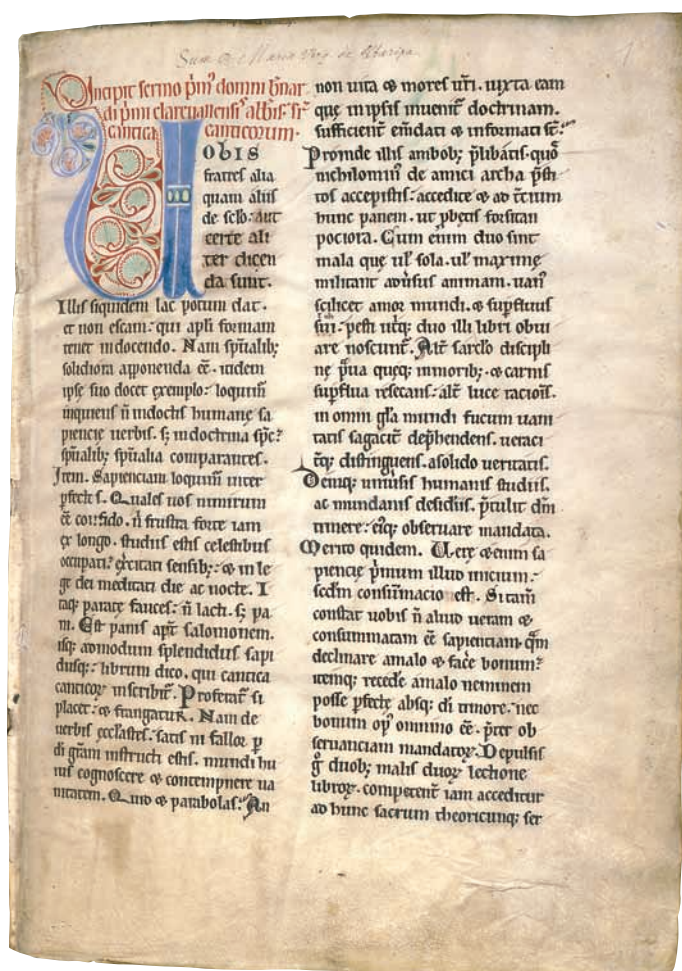 Sum B. Maria Virg. de
1
Incipit sermo p̄m' domni b̄nar
di p̄mi clareuallensis abb̄is·
cantica canticorum·
Uobis
fratres alia
quam aliis
de sc̄lo: aut
certe ali
ter dicen
da sunt.
Illis siquidem lac potum dat·
et non escam: qui apl̄i formam
tenet in docendo. Nam sp̄ualib;
solidiora apponenda eē· itidem
ipse suo docet exemplo: loquim̄
inquiens n̄ in doctis humanę sa
pientię uerbis. s; in doctrina sp̄c̄
sp̄ualib; sp̄ualia comparantes.
Item. Sapientiam loquim̄ inter
p̄fectos. Quales uos nimirum
eē confido. n̄ frustra forte iam
ex longo. studiis estis celestibus
occupati: exercitati sensib;: & in le
ge dei meditati die ac nocte. I
taq; parate fauces: n̄ lacti. s; pa
ni. Est panis apt̄ salomonem.
isq; admodum splendidus sapi
dusq;: librum dico. qui cantica
canticoꝝ inscribit̄. Proferat̄ si
placet: & frangatur. Nam de
uerbis ecclastes. satis ni fallor p
di gr̄am instructi estis. mundi hu
ius cognoscere & contempnere ua
nitatem. Quid & parabolas: An
non uita & mores ur̄i. iuxta eam
que in ipsis inuenit̄ doctrinam.
sufficient̄ em̄dati & informati st̄:
Proinde illis ambob; p̄libatis. quo
nichilomin' de amici archa p̄sti
tos accepistis: accedite & ad tc̄ium
hunc panem. ut p̄betis forsitan
pociora. Cum enim duo sint
mala que ul' sola. ul' maxime
militant adūsus animam. uan'
scilicet amor mundi. & sup̄fluus
sui: pesti utrq; duo illi libri obui
are noscunt̄. Alt̄ sarclo discipli
nę p̄ua quęq; in morib;. & carnis
sup̄flua resecans: alt̄ luce racionis.
in omni gl̄a mundi fucum uani
tatis sagacit̄ dep̄hendens. ueraci
t̄q; distinguens. a solido ueritatis.
Deniq; uniūsis humanis studiis.
ac mundanis desidiis. p̄tulit dm̄
timere: eiq; obseruare mandata.
Merito quidem. Uere & enim sa
piencię p̄mum illud inicium:
sc̄dm consum̄macio est. Si tam̄
constat uobis n̄ aliud ueram &
consummatam eē sapientiam. qm̄
declinare a malo & face bonum:
itemq; recede a malo neminem
posse p̄fecte absq; di timore. nec
bonum op' omnino eē. p̄ter ob
seruanciam mandatoꝝ. Depulsis
g̊ duob; malis duoꝝ lectione
libroꝝ. competent̄ iam acceditur
ad hunc sacrum theoricumq; ser